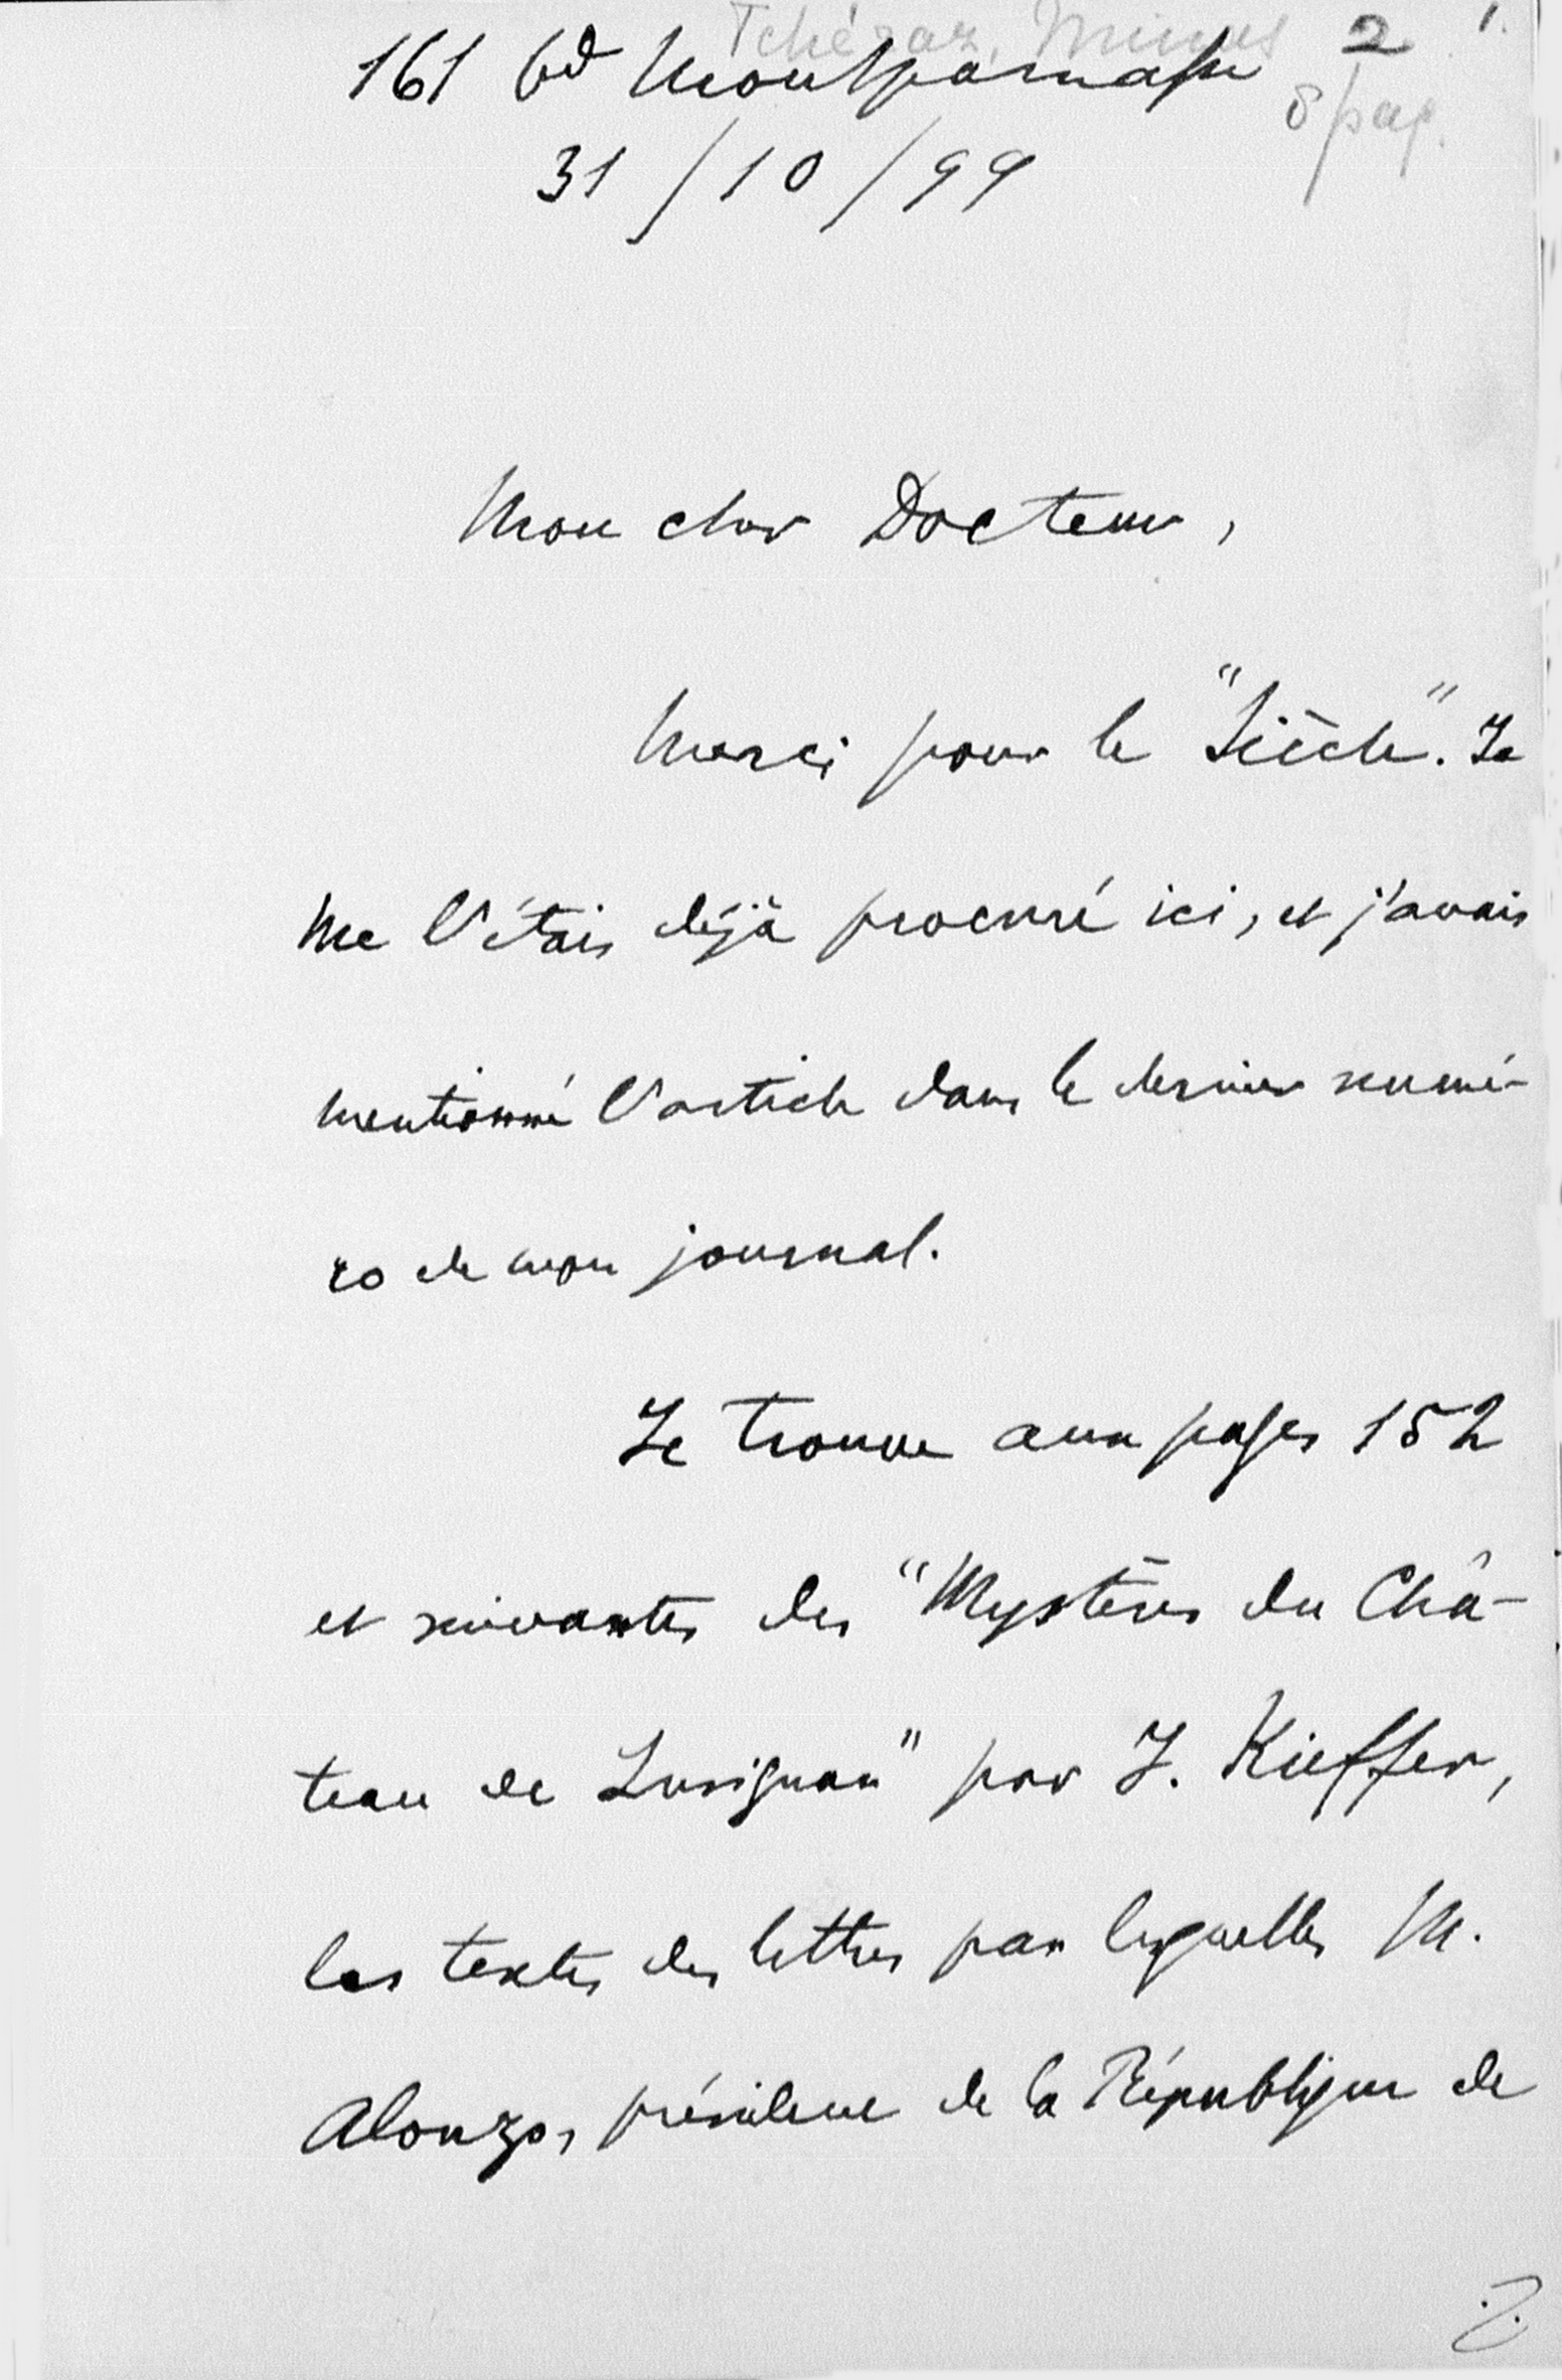 Tchéraz, Minas 2 1.
161 bd Montparnasse
8 pag.
31/10/99
Mon cher Docteur,
Merci pour le "Siècle". Je
me l'étais déjà procuré ici, et j'avais
mentionné l'article dans le dernier numé-
ro de mon journal.
Je trouve aux pages 152
et suivantes des "Mystères du Châ-
teau de Lusignan" par J. Kieffer,
les textes des lettres par lesquelles M.
Alonzo, président de la République de